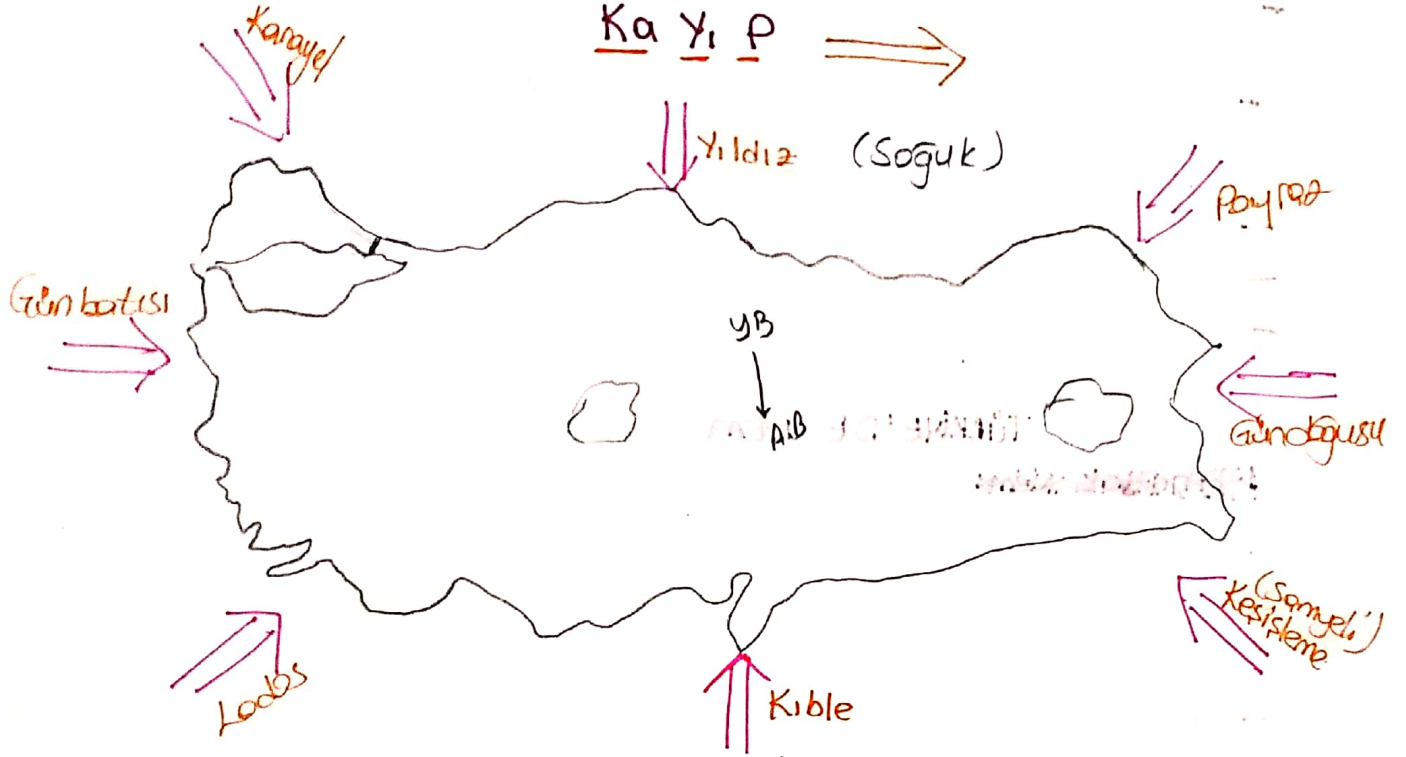 Ka Yı P
Karayel
Yıldız (Soğuk)
Poyraz
Günbatısı
YB
AB
Gündoğusu
(Samyeli)
Keşişleme
Lodos
Kıble